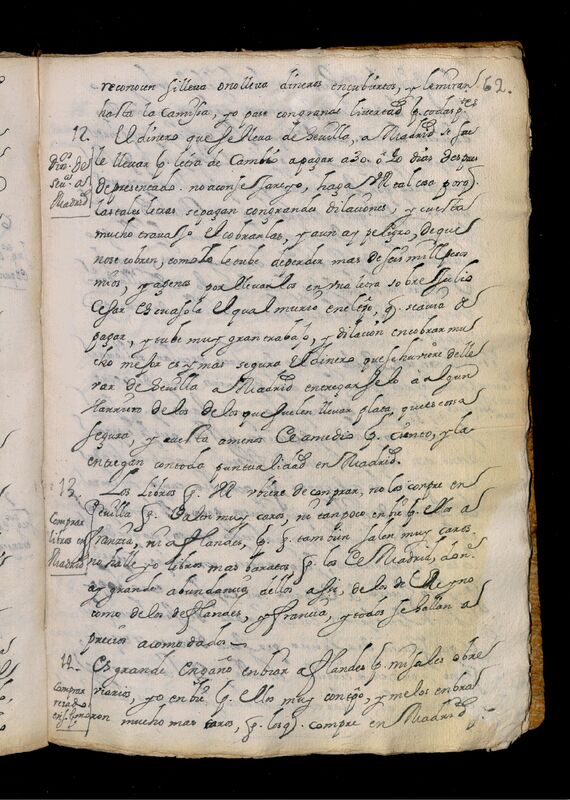 62.
reconocen si lleva o no lleva dineros encubiertos, y le miran
hasta la camisa, yo pase con grande livertad
12. El dinero que se lleva de Sevilla, a Madrid se sue
le llevar letra de Cambio a pagar a 30. o 20 dias despues
de presentado. no aconsejare yo, haga VM tal cosa porq.
las tales letras se pagan con grandes dilaciones, y cuesta
mucho travajo el cobrarlas, y aun ay peligro, de que
no se cobren, como lo tube de perder mas de seis mill pesos
mios, y agenos por llevarlos en una letra sobre Julio
Cesar Escuasola el qual murio en el tpo, q. se avia de
pagar, y tube muy gran trabajo, y dilacion en cobrar mu
cho mejor es y mas segura El dinero que se huviere de lle
var de Sevilla a Madrid entregarselo a algun
Harriero de los de los que suelen llevar plata, que es cosa
segura, y cuesta a menos de a medio ciento, y la
entregan con toda puntualidad en Madrid.
dinº. de
Seuª. a
Madrid
13. Los Libros q. VM ubiere de comprar, no los conpre en
Sevilla q. salen muy caros, ni tanpoco enbie por ellos a
francia, ni a flandes, q. tambien salen muy caros.
no halle yo libros mas baratos q. los de Madrid, don
ay grande abundancia dellos assi, de los de el Reyno
como de los de flandes, y francia, y todos se hallan a
precios acomodados.
Comprar
libros en
Madrid
14. Es grande engaño enbiar a flandes misales o bre
viarios, yo enbie ellos muy con tpo, y me los enbia
ron mucho mas caros, q. los q. compre en Madrid
comprar
rezado